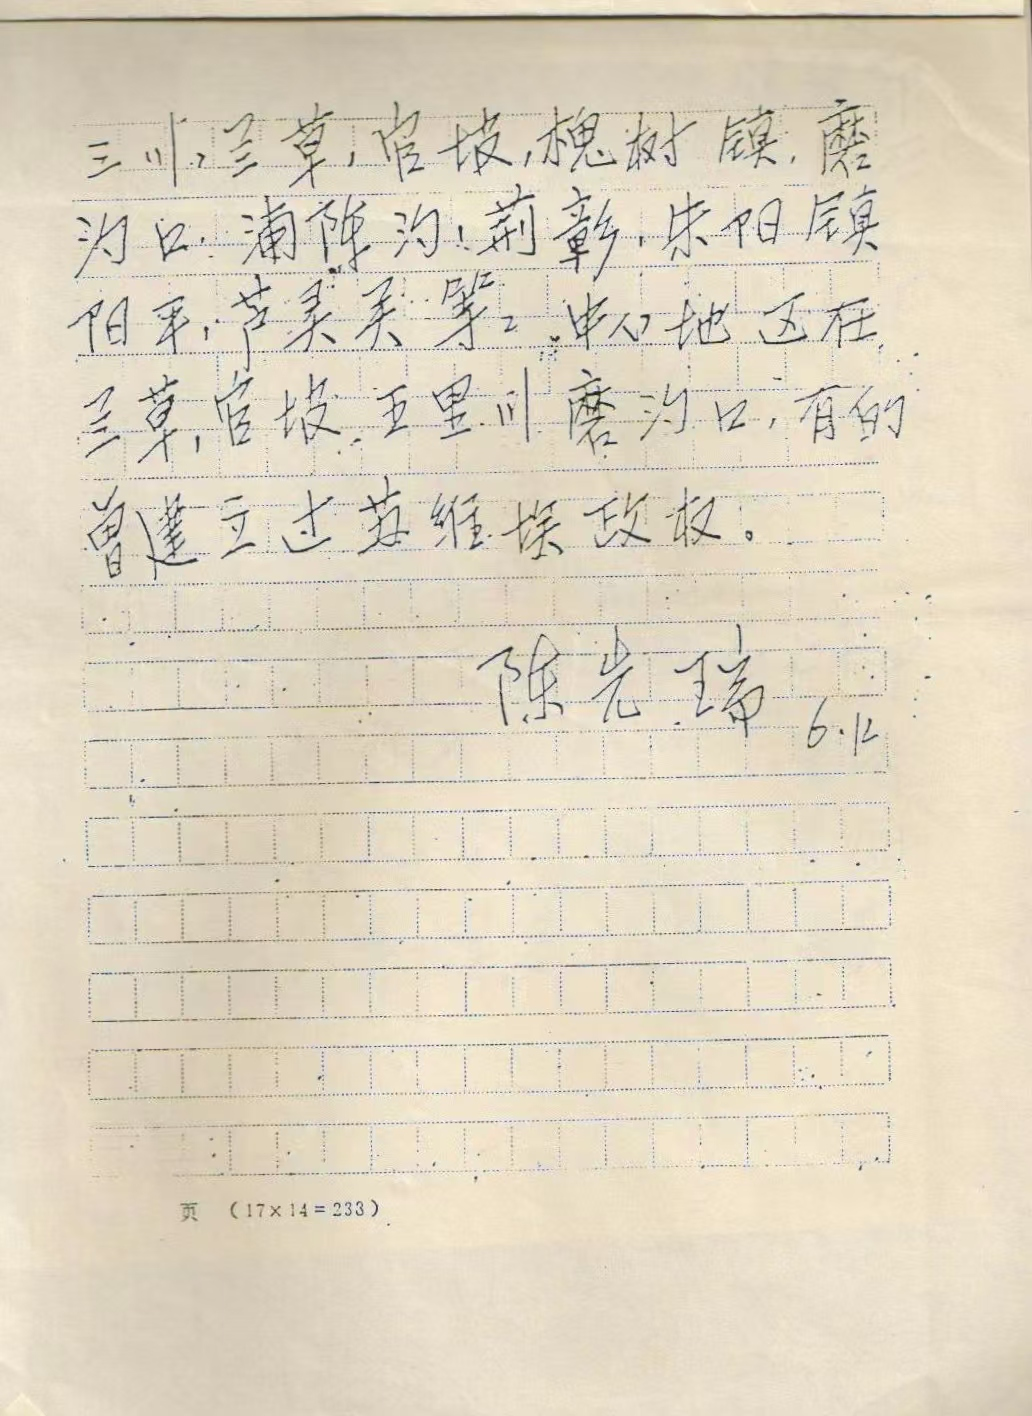 三川，兰草，官坡，槐树镇，磨
沟口，浦阵沟，荆彰，朱阳镇
阳平，芦灵关等。中心地区在
兰草，官坡，五里川磨沟口，有的
曾建立过苏维埃政权。
陈先瑞
6.12
页 （17×14=233）